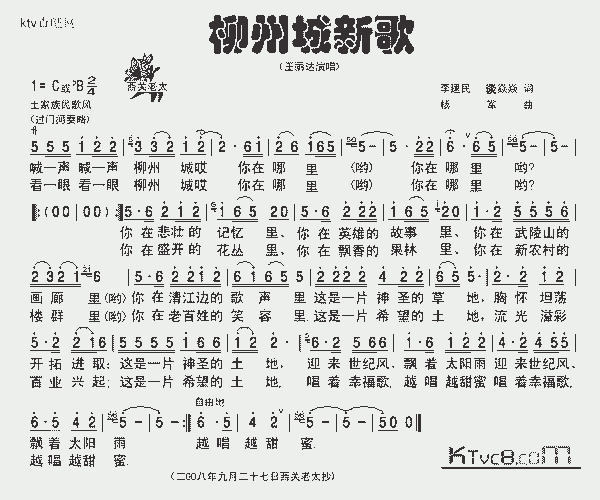 柳州城新歌
1=C或♭B 2/4
西关老太
李建民 词
杨 军 曲
土家族民歌风
喊一声 喊一声 柳州 城哎 你在哪里 (哟) 你在哪里 哟?
看一眼 看一眼 柳州 城哎 你在哪里 (哟) 你在哪里 哟?
你在悲壮的 记忆 里、你在英雄的 故事 里、你在武陵山的
你在盛开的 花丛 里、你在飘香的 果林 里、你在新农村的
画廊 里(哟)你在清江边的 歌声里 这是一片 神圣的 草地,胸怀坦荡
楼群 里(哟)你在老百姓的 笑容里 这是一片 希望的 土地,流光溢彩
开拓进取;这是一片 神圣的 土地, 迎来世纪风、飘着太阳雨 迎来世纪风、
百业兴起;这是一片 希望的 土地, 唱着幸福歌、越唱越甜蜜 唱着幸福歌,
自由地
飘着太阳 雨 越唱越甜 蜜.
越唱越甜 蜜.
(二00八年九月二十七日西关老太抄)
KTvc8.com